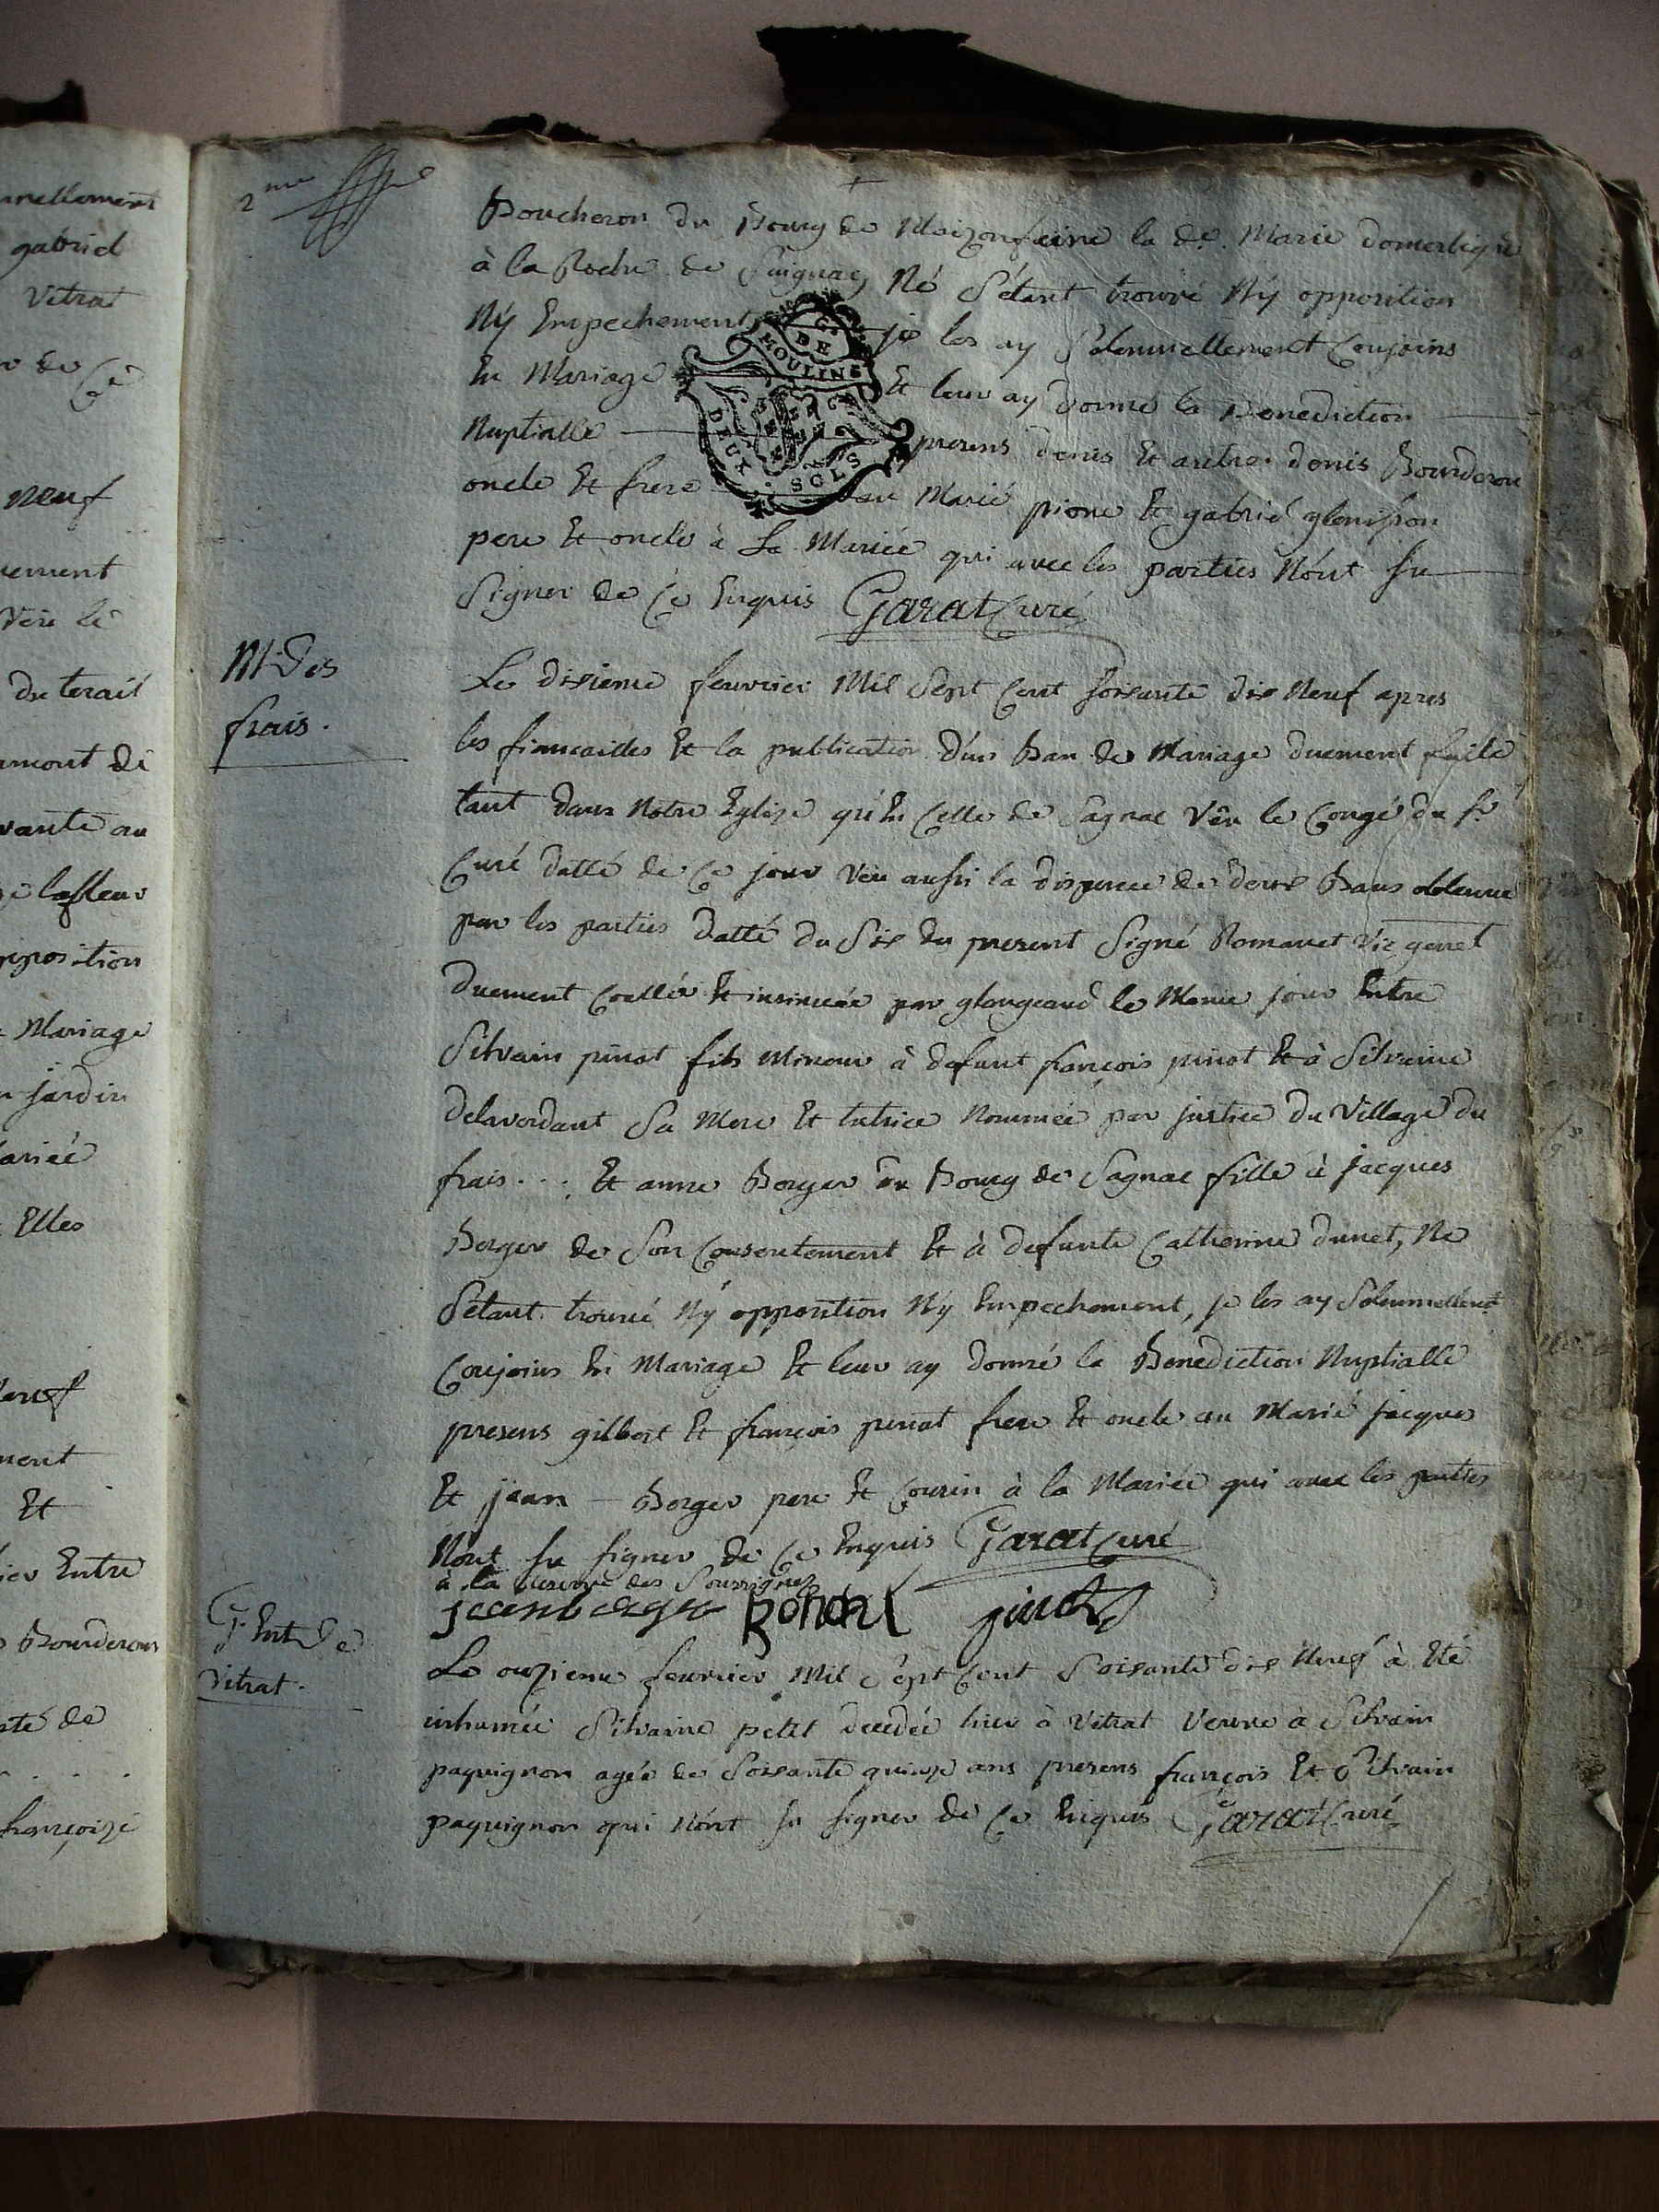 nellement
gabriel
Vitrat
de Ce
Neuf
Vëu le
du terail
amont de
vante au
lasleur
opposition
Mariage
jardin
Mariée
Elles
Neuf
ment
Et
Entre
Bourderon
de
françoize
2me
Boucheron du Bourg de Maizonfeine la de. Marie domestique
à la Roche de Suignac, Né S'étant trouvé Ny opposition
Ny Empechement je les ay Solemnellement Conjoins
En Mariage Et leur ay donné la Benediction
Nuptialle presens denis Et autre denis Bourderon
oncle Et frere au Marié pierre Et gabriel glenisson
pere Et oncle à La Mariée qui avec les parties N'ont su
Signer de Ce Enquis Garat Curé
DE MOULINS
DEUX SOLS
M. Des
frais.
Le dixieme fevrier Mil Sept Cent soixante dix Neuf apres
les fiancailles Et la publication d'un Ban de Mariage duement faite
tant dans Nôtre Eglize qu'En Celle de Sagnac Vëu le Congé du sr
Curé datté de Ce jour Vëu aussi la dispence de deux Bans obtenue
par les parties datté du Six du present Signé Romanet Vic genel
duement Coellée Et insinuée par glangeaud le Meme jour Entre
Silvain pinot fils Mineur à defunt françois pinot Et à Silvaine
delaverdant Sa Mere Et tutrice Nommée par justice du Village du
frais... Et anne Berger du Bourg de Sagnac fille à jacques
Berger de Son Consentement Et à defunte Catherine dunet, Ne
S'étant trouvé Ny opposition Ny Empechement, je les ay Solemnellement
Conjoins En Mariage Et leur ay donné la Benediction Nuptialle
presens gilbert Et françois penot frere Et oncle au Marié jacques
Et jean Berger pere Et Cousin à la Mariée qui avec les parties
N'ont su signer de Ce Enquis Garat Curé
à la reserve des Soussignez
jean berger pinot
Ent de
Vitrat.
Le onzieme fevrier Mil Sept Cent Soixante dix Neuf à Eté
inhumée Silvaine petit decedée hier à Vitrat Veuve à Silvain
paquignon agée de Soixante quinze ans presens françois Et Silvain
paquignon qui N'ont su signer de Ce Enquis Garat Curé